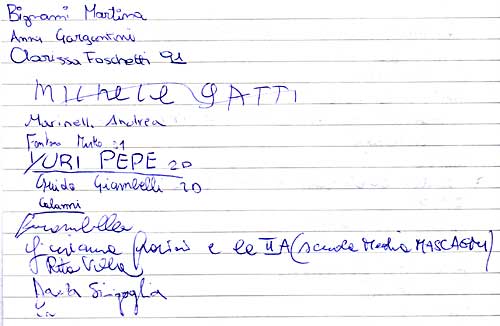 Bignami Martina
Anna Gargantini
Clarissa Foschetti 91
Michele GATTI
Marinelli Andrea
YURI PEPE 2D
Guido Giambelli 2D
Calanni
e la IIA (scuola Media MASCAGNI)
Rita Villa
Sinigoglia